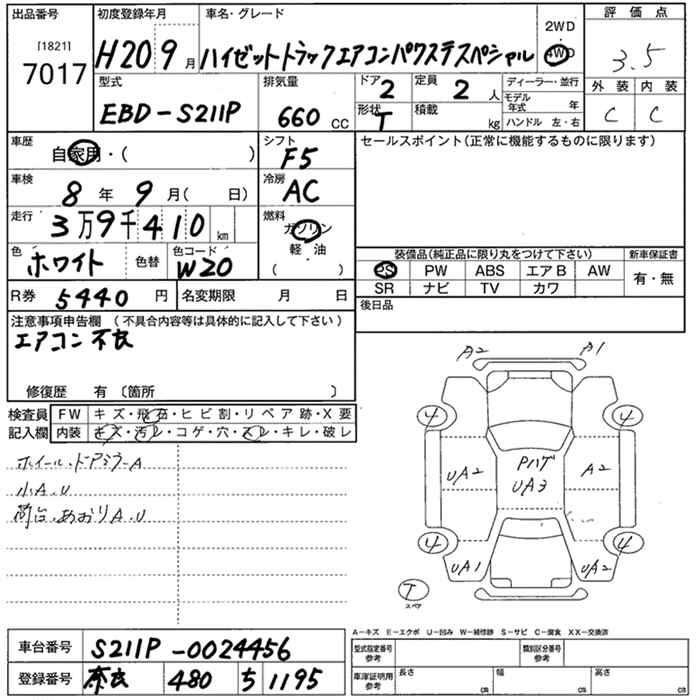 出品番号 [1821] 7017
初度登録年月 H20 9月
車名・グレード ハイゼットトラックエアコンパワステスペシャル
2WD 4WD
評価点 3.5
外装 内装
C C
型式 EBD-S211P
排気量 660 CC
ドア 2 定員 2人
形状 T 積載 kg
ディーラー・並行
モデル年式 年
ハンドル 左・右
車歴 自家用・( )
シフト F5
車検 8年9月( 日)
冷房 AC
走行 3万9千410km
燃料 ガソリン 軽・油 ( ・ )
色 ホワイト 色替 色コード W20
R券 5440円 名変期限 月 日
セールスポイント(正常に機能するものに限ります)
装備品(純正品に限り丸をつけて下さい) 新車保証書
PS PW ABS エアB AW 有・無
SR ナビ TV カワ
後日品
注意事項申告欄(不具合内容等は具体的に記入して下さい)
エアコン不良
修復歴 有〔箇所 〕
検査員記入欄
FW キズ・飛石・ヒビ割・リペア跡・X要
内装 キズ・汚レ・コゲ・穴・スレ・キレ・破レ
ホイール・ドアミラーA
小A.U
荷台.あおりA.U
A2 A1
4 4
UA2 Pハゲ UA3 A2
4 4
UA1 UA2
T スペア
A-キズ E-エクボ U-凹み W-補修跡 S-サビ C-腐食 XX-交換済
車台番号 S211P-0024456
登録番号 奈良 480 ち 1195
型式指定番号 参考 類別区分番号 参考
車庫証明用 参考 長さ cm 幅 cm 高さ cm